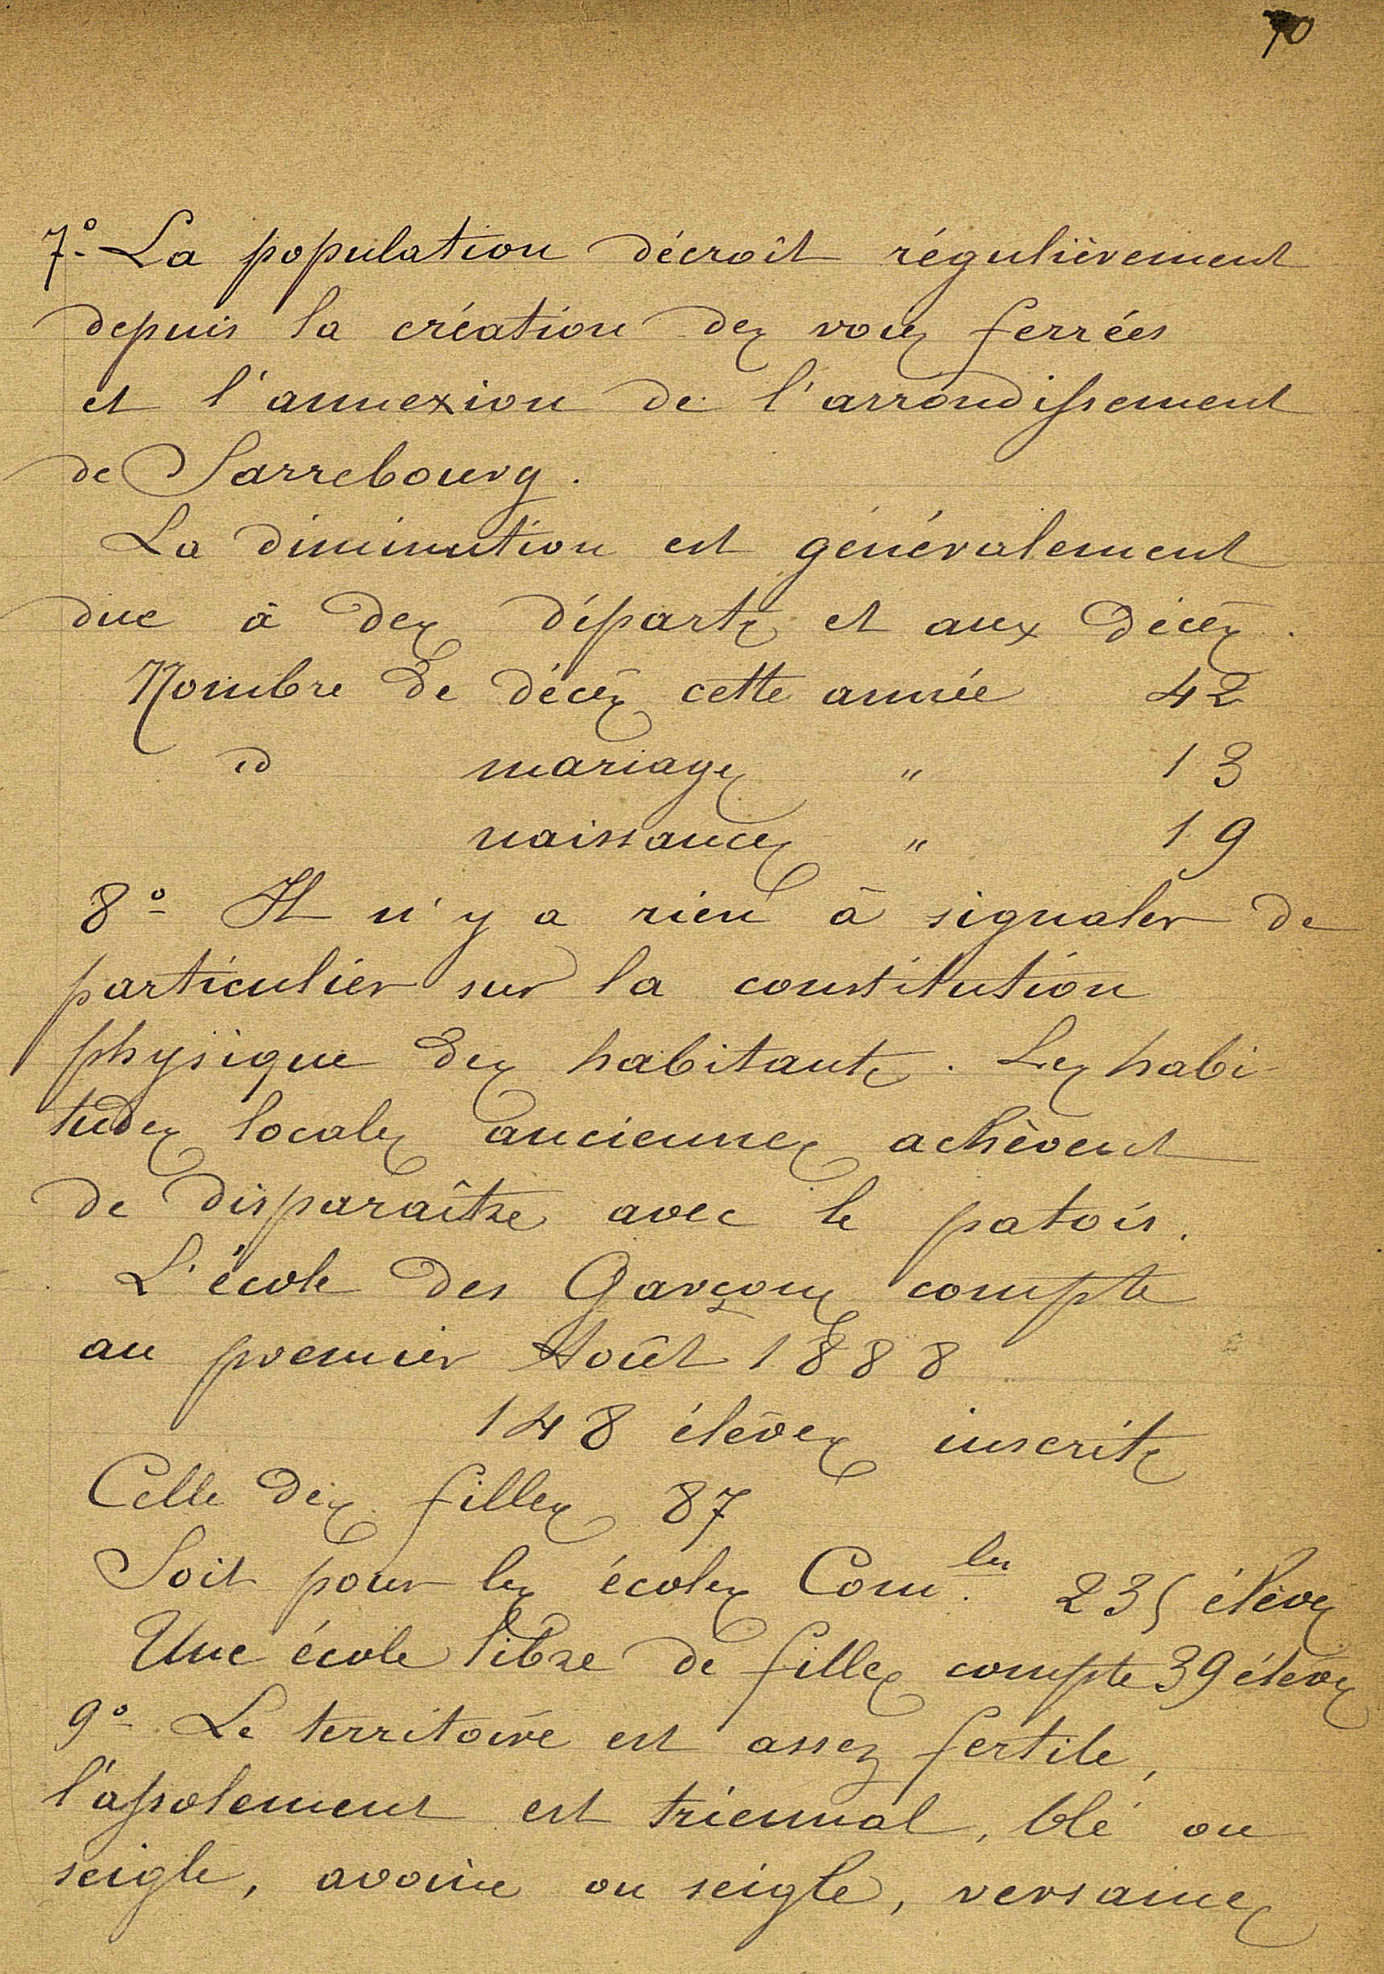 70
7º- La population décroît régulièrement
depuis la création des voies ferrées
et l'annexion de l'arrondissement
de Sarrebourg.
La diminution est généralement
due à des départs et aux décès.
Nombre de décès cette année 42
id mariages " 13
naissances " 19
8º- Il n'y a rien à signaler de
particulier sur la constitution
physique des habitants. Les habi-
tudes locales anciennes achèvent
de disparaître avec le patois.
L'école des Garçons compte
au premier Août 1888
148 élèves inscrits
Celle des filles 87
Soit pour les écoles Com.les 235 élèves
Une école libre de filles compte 39 élèves
9º- Le territoire est assez fertile,
l'assolement est triennal, blé ou
seigle, avoine ou seigle, versaines